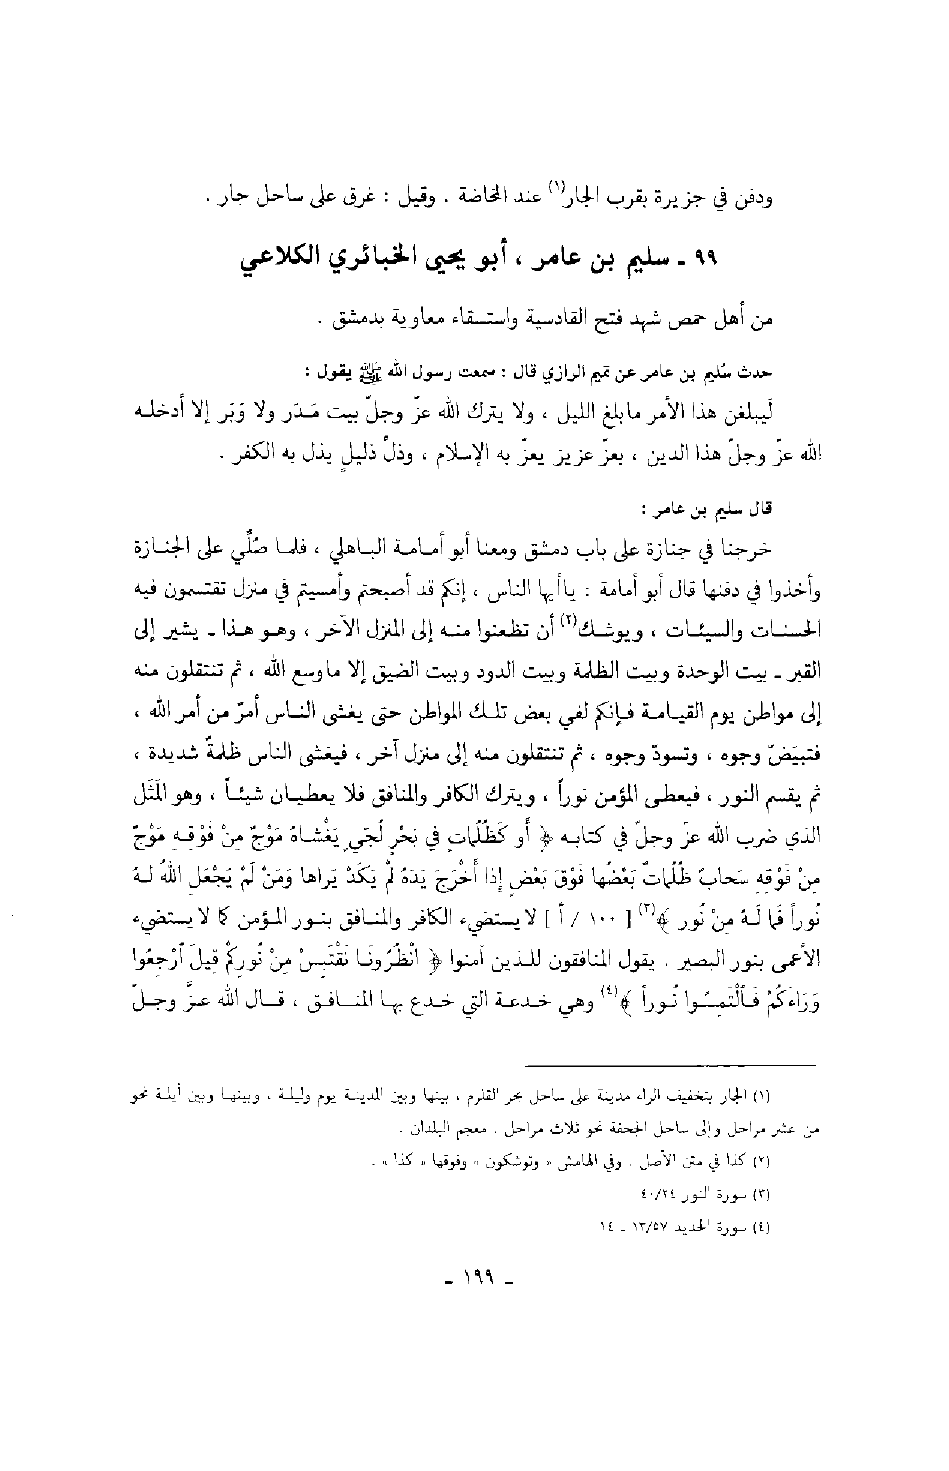 ودفن في جزيرة بقرب الجار(١) عند المخاضة . وقيل : غرق على ساحل جار .
٩٩ ـ سليم بن عامر ، أبو يحيى الخبائري الكلاعي
من أهل حمص شهد فتح القادسية واستسقاء معاوية بدمشق .
حدث سُليم بن عامر عن تميم الرازي قال : سمعت رسول الله ﷺ يقول :
ليبلغن هذا الأمر مابلغ الليل ، ولا يترك الله عزّ وجلّ بيت مَدَر ولا وَبَر إلا أدخله
الله عزّ وجلّ هذا الدين ، بعزّ عزيز يعزّ به الإسلام ، وذلّ ذليلٍ يذل به الكفر .
قال سليم بن عامر :
خرجنا في جنازة على باب دمشق ومعنا أبو أمامة الباهلي ، فلما صُلّي على الجنازة
وأخذوا في دفنها قال أبو أمامة : ياأيها الناس ، إنكم قد أصبحتم وأمسيتم في منزل تقتسمون فيه
الحسنات والسيئات ، ويوشك(٢) أن تظعنوا منه إلى المنزل الآخر ، وهو هذا ـ يشير إلى
القبر ـ بيت الوحدة وبيت الظلمة وبيت الدود وبيت الضيق إلا ماوسع الله ، ثم تنتقلون منه
إلى مواطن يوم القيامة فإنكم لفي بعض تلك المواطن حتى يغشى الناس أمرٌ من أمر الله ،
فتبيَضّ وجوه ، وتسودّ وجوه ، ثم تنتقلون منه إلى منزل آخر ، فيغشى الناس ظلمةٌ شديدة ،
ثم يقسم النور ، فيعطى المؤمن نوراً ، ويترك الكافر والمنافق فلا يعطيان شيئاً ، وهو المَثَل
الذي ضرب الله عزّ وجلّ في كتابه ﴿ أو كَظُلُماتٍ في بَحْرٍ لُجّيٍ يَغْشاهُ مَوْجٌ مِنْ فَوْقِهِ مَوْجٌ
مِنْ فَوْقِهِ سَحابٌ ظُلُماتٌ بَعْضُها فَوْقَ بَعْضٍ إذا أخْرَجَ يَدَهُ لَمْ يَكَدْ يَراها وَمَنْ لَمْ يَجْعَلِ اللهُ لَهُ
نُوراً فَمَا لَهُ مِنْ نُورٍ ﴾(٣) [ ١٠٠ / أ ] لا يستضيء الكافر والمنافق بنور المؤمن كما لا يستضيء
الأعمى بنور البصير . يقول المنافقون للذين آمنوا ﴿ انْظُرُونَا نَقْتَبِسْ مِنْ نُورِكُمْ قِيلَ ٱرْجِعُوا
وَرَاءَكُمْ فَالْتَمِسُوا نُوراً ﴾(٤) وهي خدعة التي خدع بها المنافق ، قال الله عزَّ وجلّ
(١) الجار بتخفيف الراء مدينة على ساحل بحر القلزم ، بينها وبين المدينة يوم وليلة ، وبينها وبين أيلة نحو
من عشر مراحل وإلى ساحل الجحفة نحو ثلاث مراحل . معجم البلدان .
(٢) كذا في متن الأصل . وفي الهامش « وتوشكون » وفوقها « كذا » .
(٣) سورة النور ٤٠/٢٤
(٤) سورة الحديد ١٣/٥٧ ـ ١٤
ـ ١٩٩ ـ